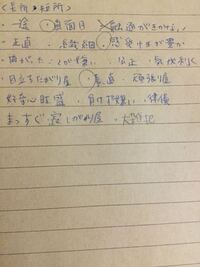 <長所・短所>
一途・真面目 融通がきかない
正直・几帳面・感受性が豊か
曲がったことが嫌い 公正 気が利く
目立ちたがり屋 素直・頑張り屋
好奇心旺盛 負けず嫌い 律儀
まっすぐ 寂しがり屋